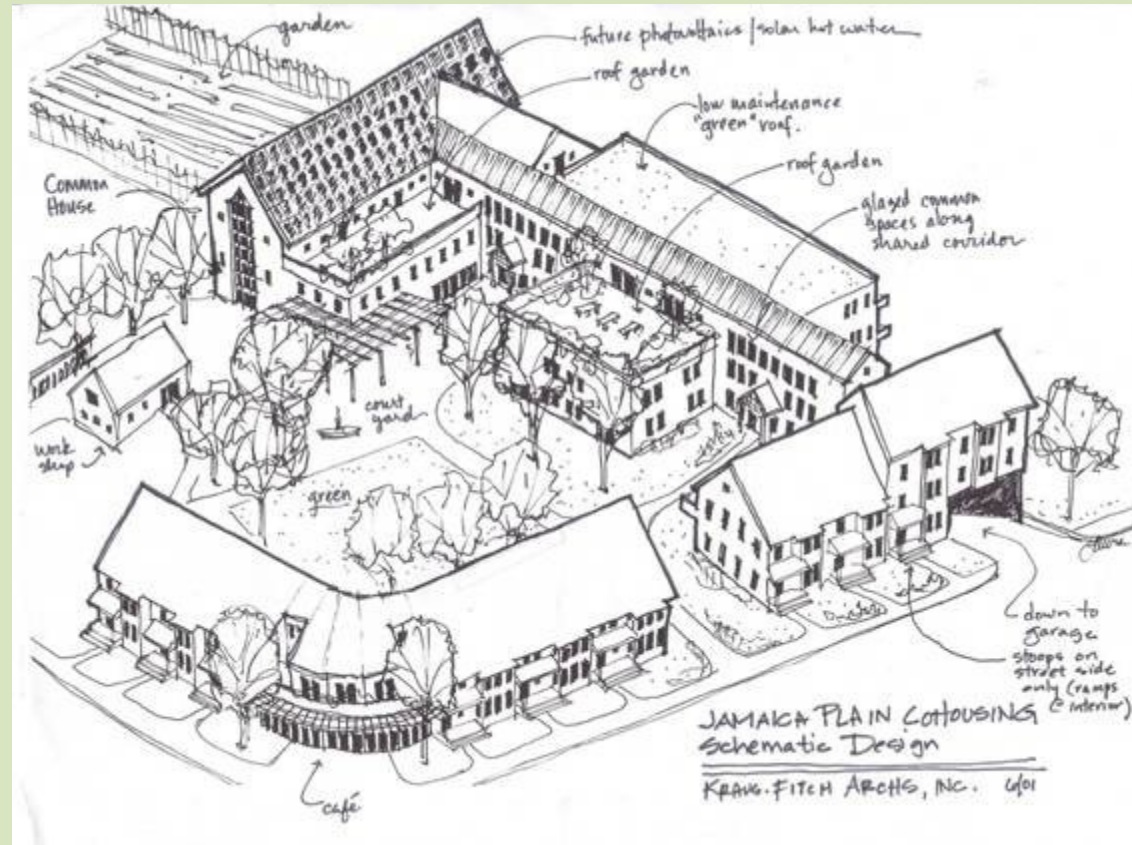 garden
future photovoltaics/solar hot water
roof garden
low maintenance
"green" roof.
roof garden
Common
House
glazed common
spaces along
shared corridor
court
yard
work
shop
green
down to
garage
stoops on
street side
only (ramps
@ interior)
JAMAICA PLAIN COHOUSING
Schematic Design
KRAUS-FITCH ARCHS, INC. 6/01
café